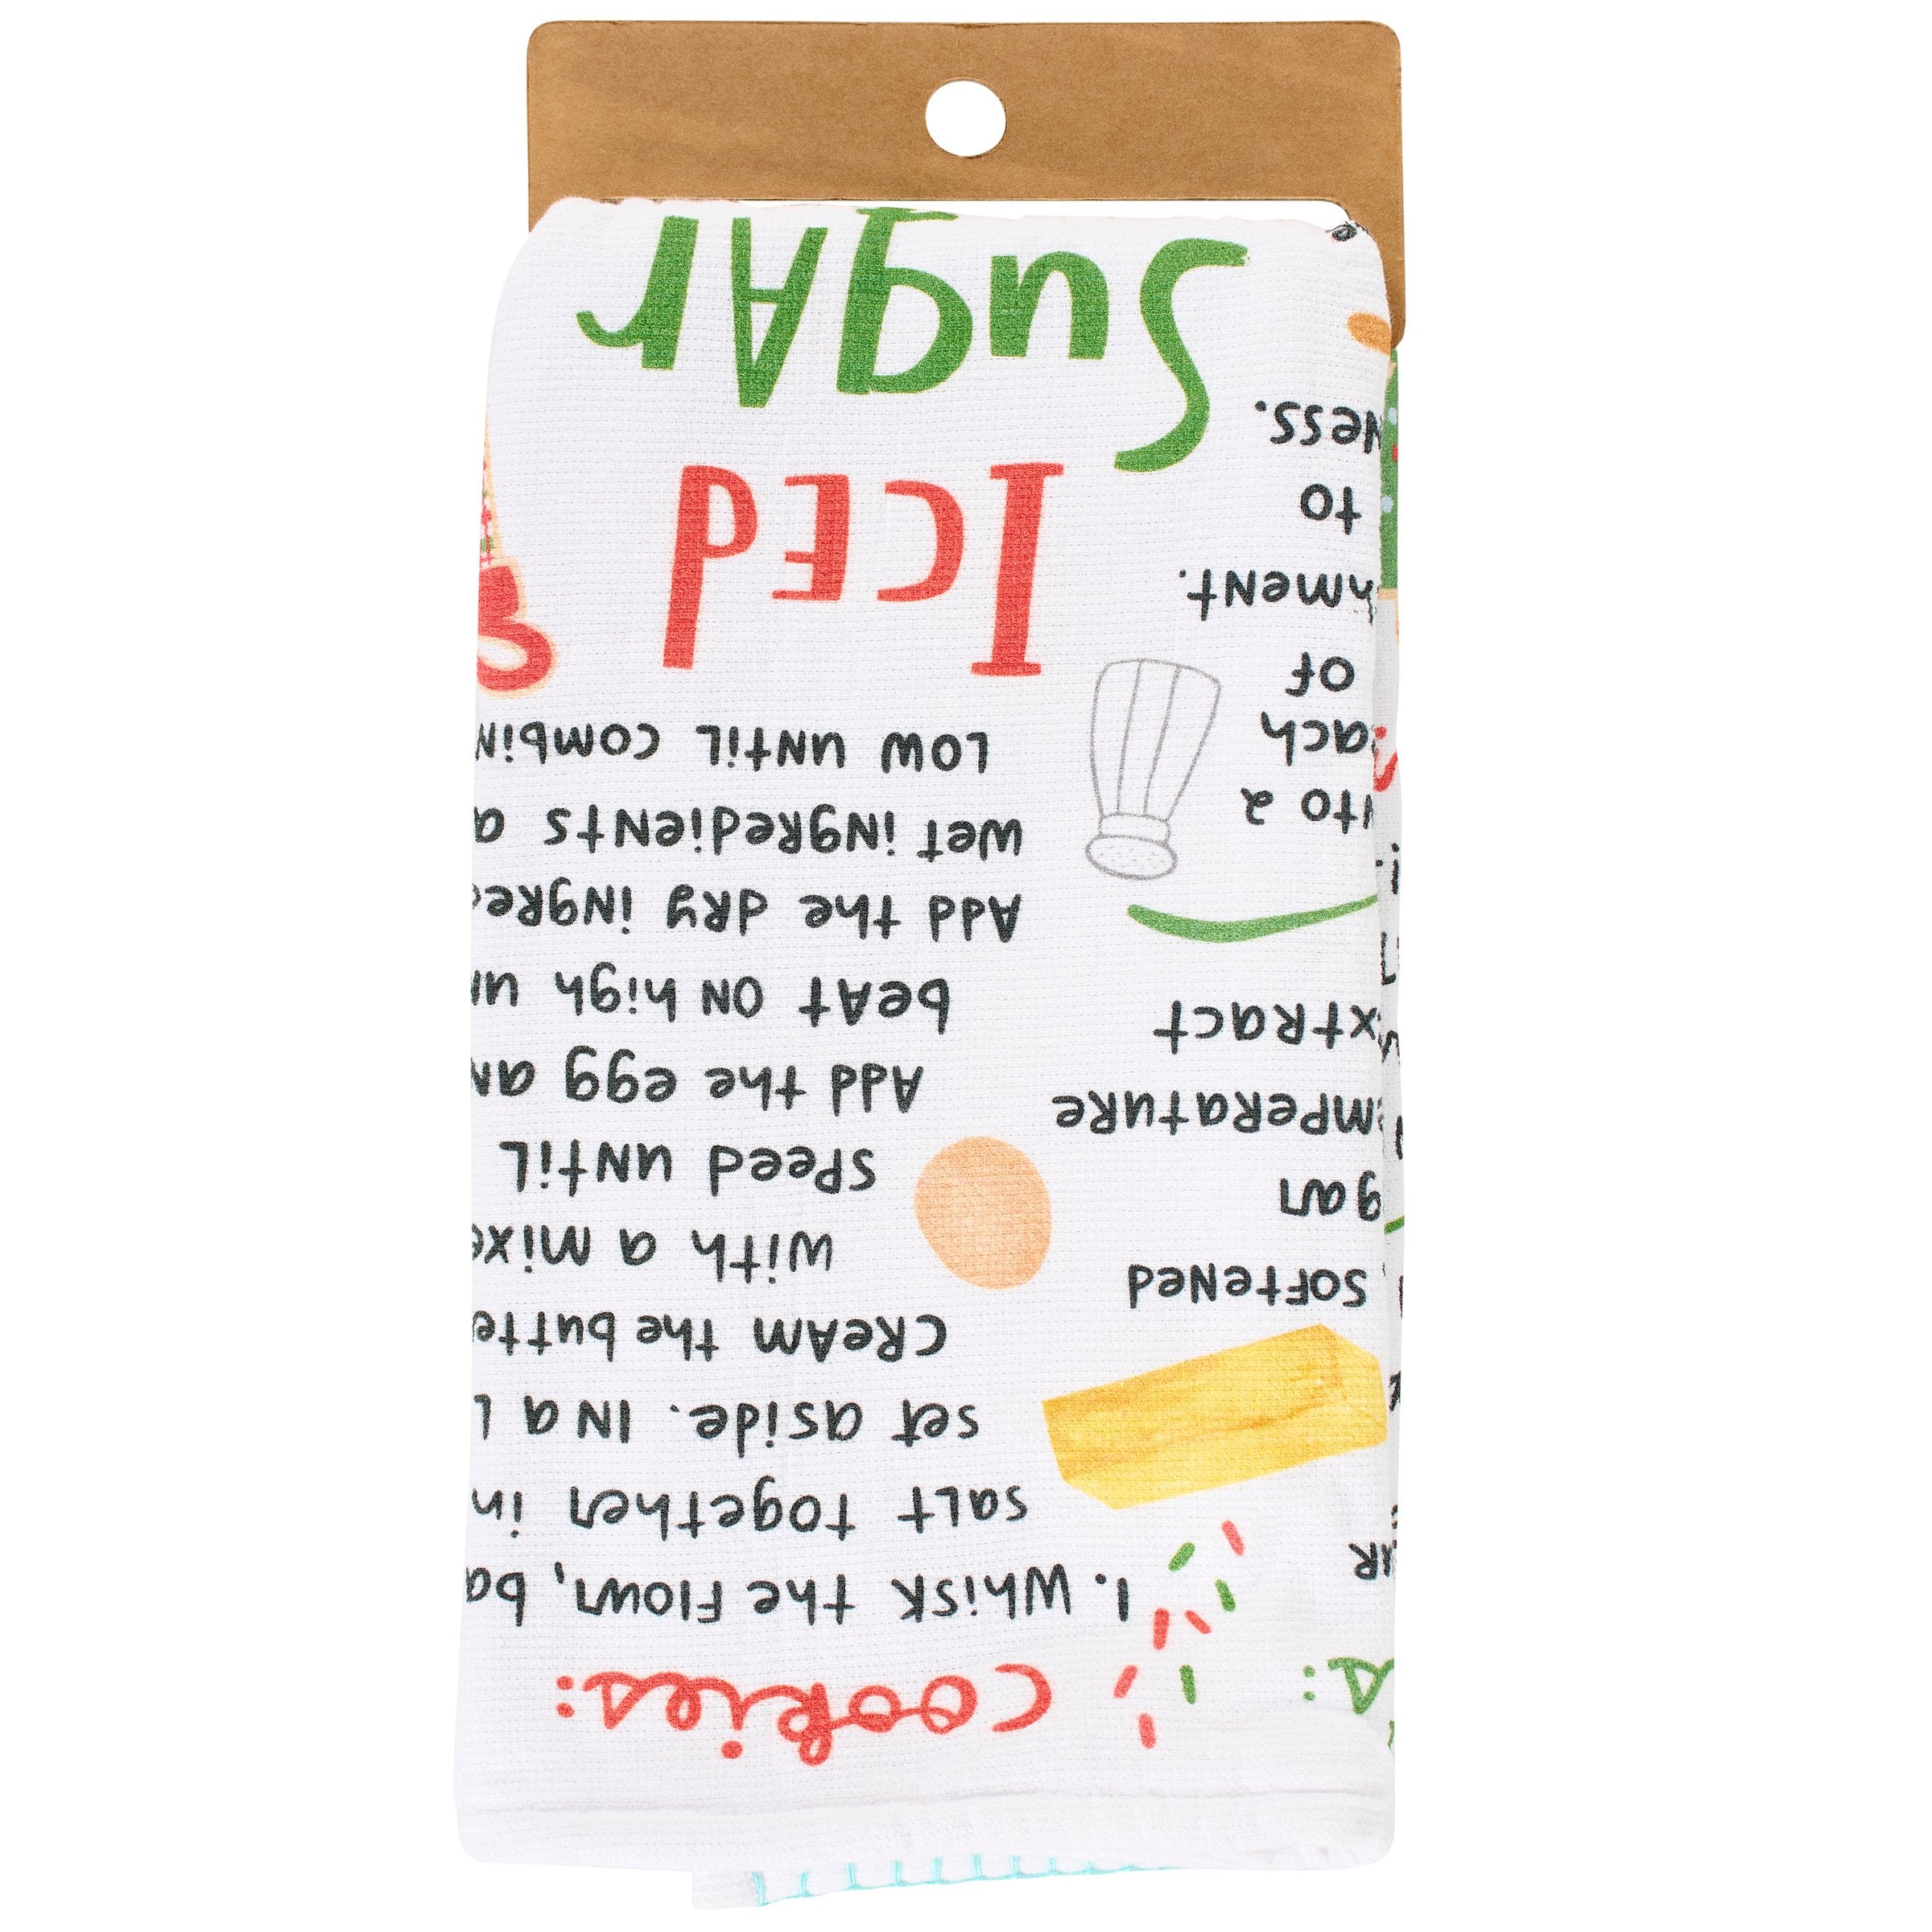 cookies:
1. Whisk the flour, ba
salt together in
set aside. In a l
cream the butte
with a mixe
speed until
Add the egg an
beat on high un
Add the dry ingre
wet ingredients a
low until combin
Iced
Sugar
softened
gar
mperature
xtract
to 2
ach
of
hment.
to
ness.